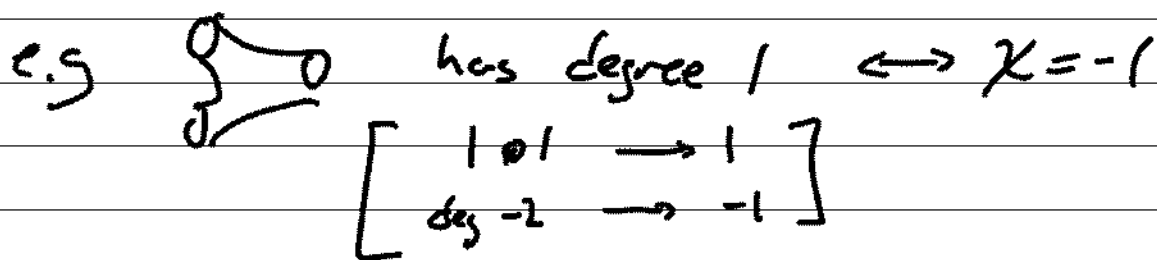 e.g has degree 1 ⟷ χ = -1
[ 1 ⊗ 1 ⟶ 1
deg -2 ⟶ -1 ]